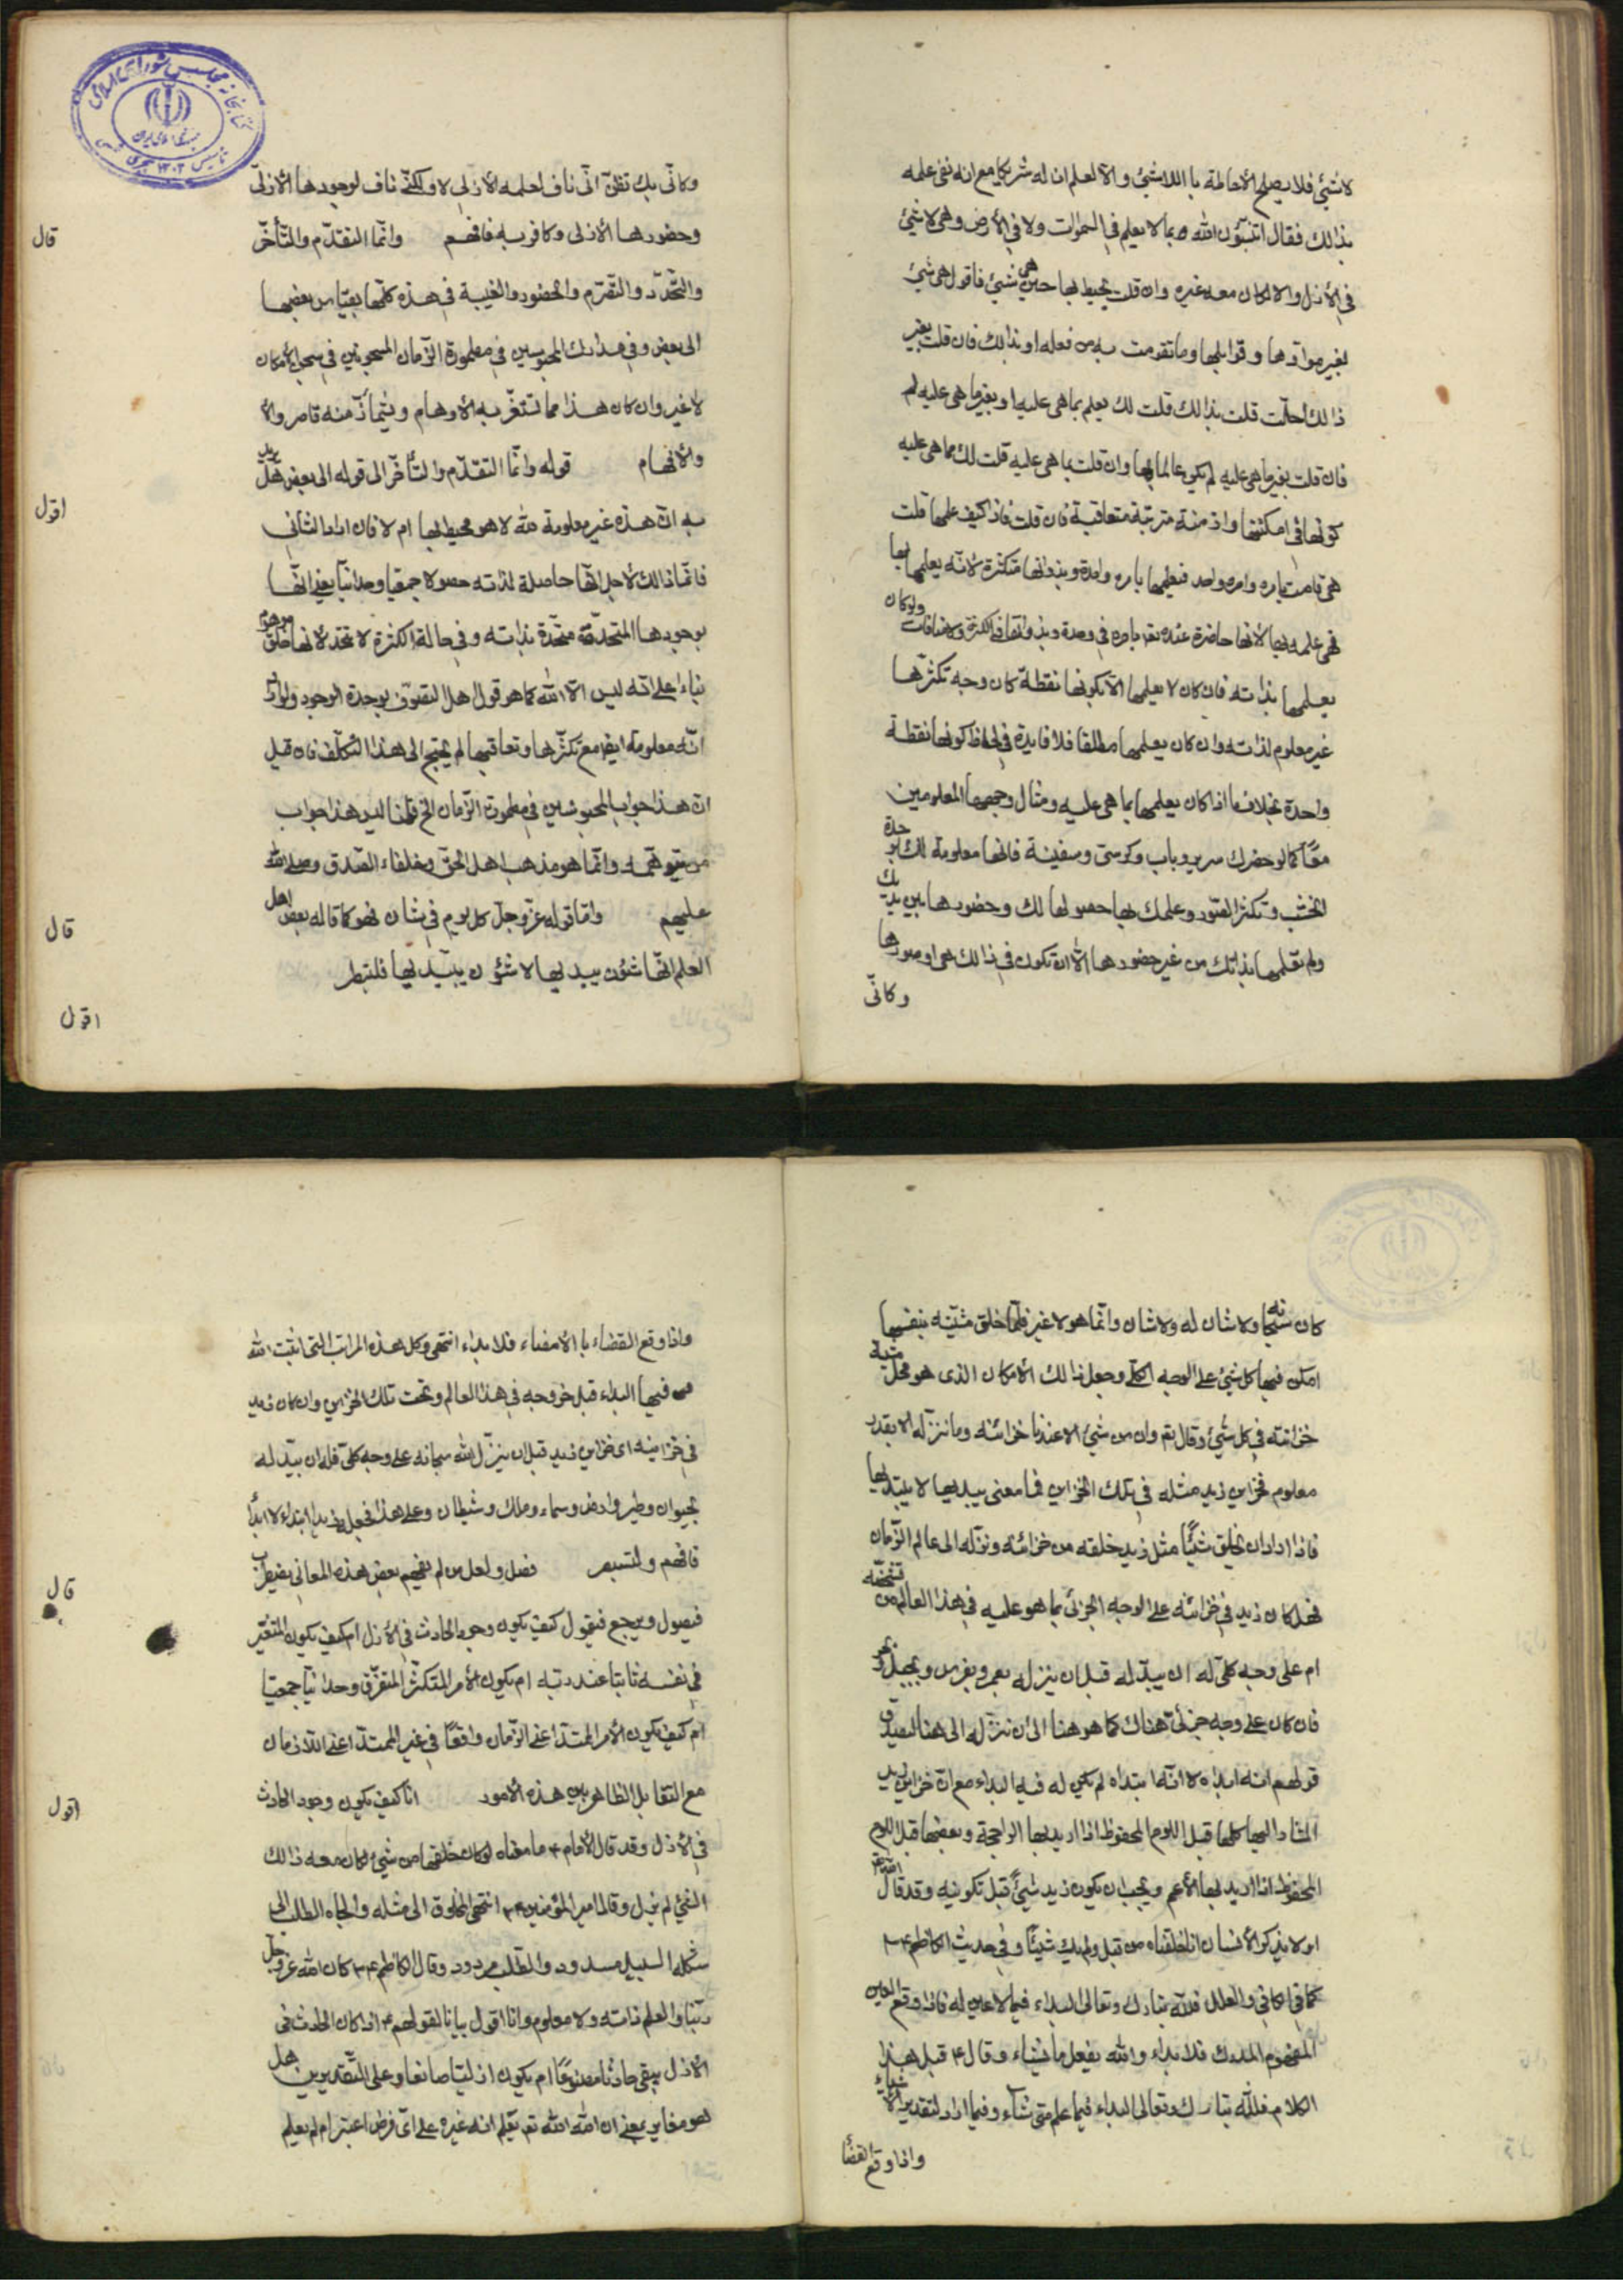 لا شئ فلا يصلح الأحاطة با اللاشئ والا لعلم ان له شريكا مع انه نفى علمه
بذالك فقال اتنبّؤن الله بما لا يعلم في السموات ولا في الأرض وهى لا شئ
في الأزل والا لكان معه غيره وان قلت يحيط بها حين هى شئ فاقول هى شئ
بغير موادّها وقوابلها وما تقومت به من فعله او بذالك فان قلت بغير
ذالك احلّت قلت بذالك قلت لك يعلم بما هى عليه او بغير ما هى عليه لم
فان قلت بغير ما هى عليه لم يكن عالما بها وان قلت بما هى عليه قلت لك مما هى عليه
كونها فى امكنتها وازمنة مترتبة متعاقبة فان قلت فاذا كيف علمها قلت
هى قامت بامره وامره واحد فيعلمها بامره واحدة وبذواتها متكثرة لانّه يعلمها بها
فهى علمه بها لانها حاضرة عنده بامره في وحدة وبذواتها في الكثرة ولاضافات ولو كان
يعلمها بذاته فان كان لا يعلمها الا بكونها نقطة كان وجه تكثرّها
غير معلوم لذاته وان كان يعلمها مطلقا فلا فايدة في لحاظ كونها نقطة
واحدة بخلاف ما اذا كان يعلمها بما هى عليه ومثال وجهها المعلومين
معًا كما لو حضرك سرير وباب وكرسى وسفينة فانها معلومة لك بوحدة
الخشب وتكثر الصّور وعلمك بها حصولها لك وحضورها بين يديك
ولم تعلمها بذاتك من غير حضورها الا ان تكون في ذالك هى او صورها
وكانّى
وكانّى بك تظنّ انّى ناف لعلمه الأزلى لا ولكنّى ناف لوجودها الأزلىّ
وحضورها الأزلى وكافر به فافهم وانّما التقدّم والتّأخّر
قال
والتّجدّد والتصّرم والحضور والغيبة في هذه كلّها بقياس بعضها
الى بعض وفي مدارك المحبوسين في مطمورة الزّمان المسجونين في سجن الأمكان
لا غير وان كان هذا مما تستغرّ به الأوهام ويشمأزّ منه قاصروا
والأفهام قوله وانّما التقدّم والتّأخّر الى قوله الى بعض هل يريد
اقول
به انّ هذه غير معلومة لله لا هو محيط بها ام لا فان اراد الثانى
فانّما ذالك لأجل انّها حاصلة لذاته حصولا جمعيّا وحدانيّا يعنى انّها
بوجودها المتحدّة متحدّة بذاته وفي حالة الكثرة لا تتحّد لانها خلق موهوم
بناء على انّه ليس الا الله كما هو قول اهل التصوّف بوحدة الوجود ولو اراد
انّه معلومة ايضا مع تكثرّها وتعاقبها لم يحتج الى هذا التّكلّف فان قيل
انّ هذا جواب المحبوسين في مطمورة الزّمان الخ قلنا ليس هذا جواب
من يتوهّمه وانّما هو مذهب اهل الحقّ وخلفاء الصّدق وصلى الله
عليهم وامّا قوله عزّ وجلّ كل يوم في شان فهو كما قاله بعض اهل
قال
العلم انّها شئون يبديها لا شئون يبتديها فلينظر
اقول
كان سبحانه ولا شان له ولا شان وانّما هو لا غير فلّما خلق مشيّته بنفسها
امكن فيها كل شئ على الوجه الكلّى وجعل ذالك الأمكان الذى هو محلّ مشيّة
خزانته في كل شئ وقال تع وان من شئ الا عندنا خزائنه وما ننزله الا بقدر
معلوم فخزاين زيد مثله في تلك الخزاين فما معنى يبديها لا يبتديها
فاذا اراد ان يخلق شيئًا مثل زيد خلقه من خزائنه ونزّله الى عالم الزّمان
فهل كان زيد في خزائنه على الوجه الجزئى بما هو عليه في هذا العالم من تشخّصه
ام على وجه كلىّ له ان يبدّله قبل ان ينزله بعمرو بفرس وبجبل
فان كان على وجه جزئىّ هناك كما هو هنا الى ان نزّله الى هنا ليصدق
قولهم انه ابداه لا انّه ابتداه لم يكن له فيه البداء مع انّ خزاين زيد
المشار اليها كلها قبل اللوح المحفوظ اذا اريد بها الراجحة وبعضها قبل اللوح
المحفوظ اذا اريد بها الأعم ويجب ان يكون زيد شيئًا قبل تكوينه وقد قال الله تع
اولا يذكر الأنسان انّا خلقناه من قبل ولم يك شيئًا وفي حديث الكاظم ع
كما في الكافى والعلل فللّه تبارك وتعالى البداء فيما لا عين له فاذا وقع العين
المفهوم المدرك فلا بداء والله يفعل ما يشاء وقال ع قبل هذا
الكلام فللّه تبارك وتعالى البداء فيما علم متى شاء وفيما اراد لتقدير الأشياء
واذا وقع القضاء
واذا وقع القضاء با الأمضاء فلا بداء انتهى وكل هذه المراتب التى اثبت الله
فيها البداء قبل خروجه في هذا العالم وتحت تلك الخزاين وان كان زيد
في خزاينه اى خزاين زيد قبل ان ينزّل الله سبحانه على وجه كلىّ فله ان يبدّله
بحيوان وطير وارض وسماء وملك وشيطان وعلى هذا فجعل زيد ابتداء لا ابداء
فافهم ولتبصر فصل ولعل من لم يفهم بعض هذه المعانى يضطرب
قال
فيصول ويرجع فيقول كيف يكون وجود الحادث في الأزل ام كيف يكون المتغيّر
في نفسه ثابتا عند ربّه ام يكون الأمر المتكثّر المتفرّق وحدانيّا جمعيّا
ام كيف يكون الأمر الممتدّ اعنى الزّمان واقعًا في غير الممتدّ اعنى اللا زمان
مع التّقابل الظاهر بين هذه الأمور امّا كيف يكون وجود الحادث
اقول
في الأزل وقد قال الأمام ع ما معناه لو كان خلقها من شئ لكان معه ذالك
الشئ لم يزل وقال امير المؤمنين ع انتهى المخلوق الى مثله والجاه الطلب الى
شكله السبيل مسدود والطّلب مردود وقال الكاظم ع كان الله عزّ وجلّ
ربّنا والعلم ذاته ولا معلوم وانا اقول بيانا لقولهم ع اذا كان الحادث فى
الأزل يبقى حادثا مصنوعًا ام يكون ازليّا صانعا وعلى التّقديرين هل
هو مغاير بمعنى ان الله الله تع يعلم انه غيره على اىّ فرض اعتبر ام لم يعلم